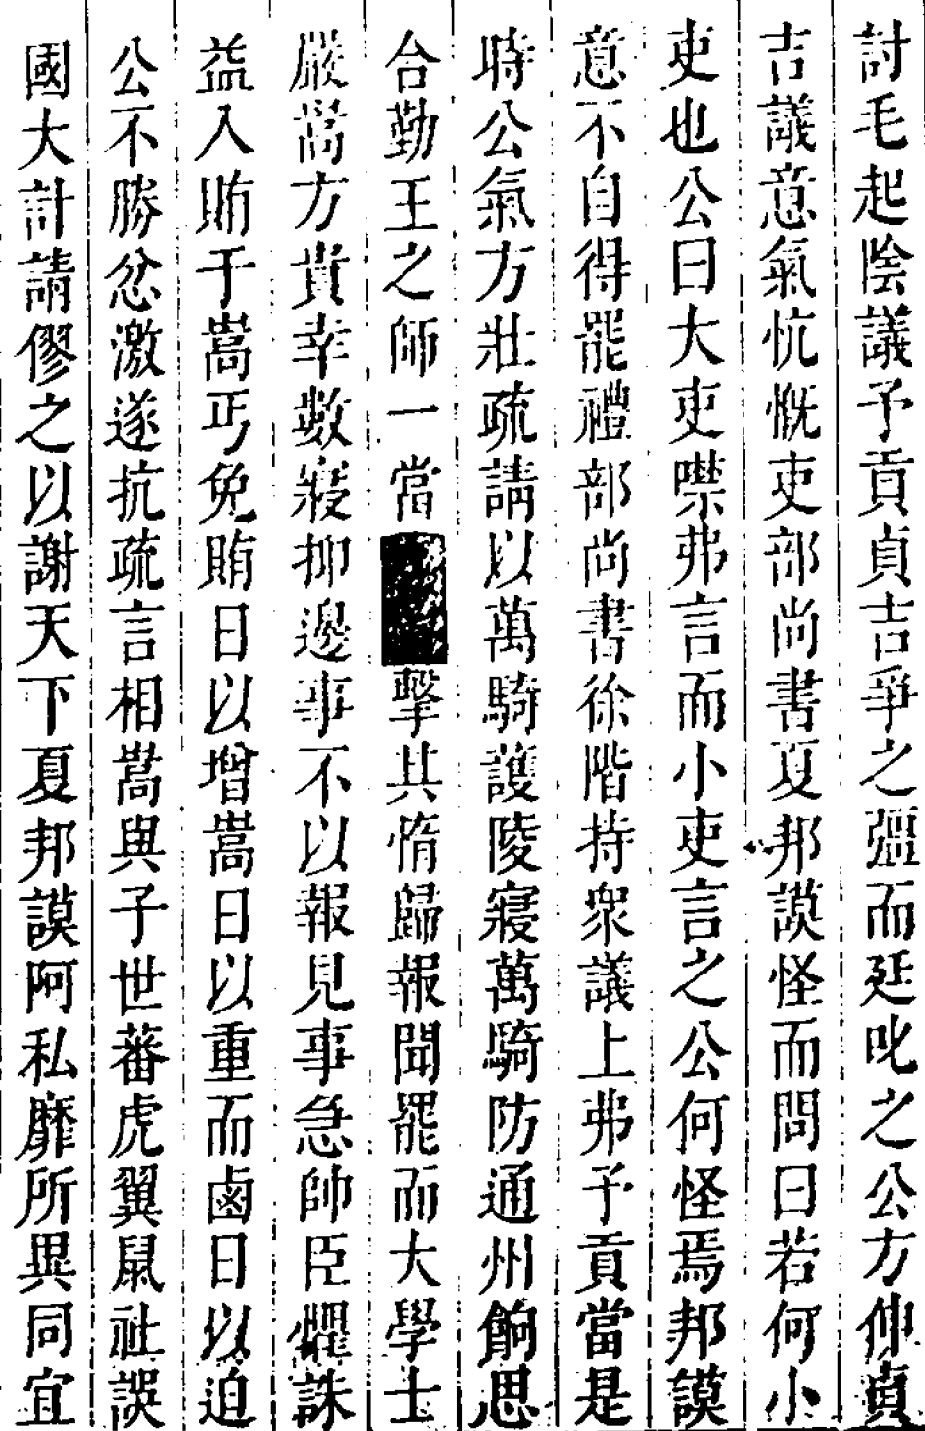 討毛起陰議予貢貞吉爭之彊而廷叱之公方伸貞
吉議意氣忼慨吏部尚書夏邦謨怪而問曰若何小
吏也公曰大吏噤弗言而小吏言之公何怪焉邦謨
意不自得罷禮部尚書徐階持衆議上弗予貢當是
時公氣方壯疏請以萬騎護陵寢萬騎防通州餉思
合勤王之師一當擊其惰歸報聞罷而大學士
嚴嵩方貴幸數寢抑邊事不以報見事急帥臣懼誅
益入賄于嵩丐免賄日以增嵩日以重而鹵日以迫
公不勝忿激遂抗疏言相嵩與子世蕃虎翼鼠社誤
國大計請僇之以謝天下夏邦謨阿私靡所異同宜